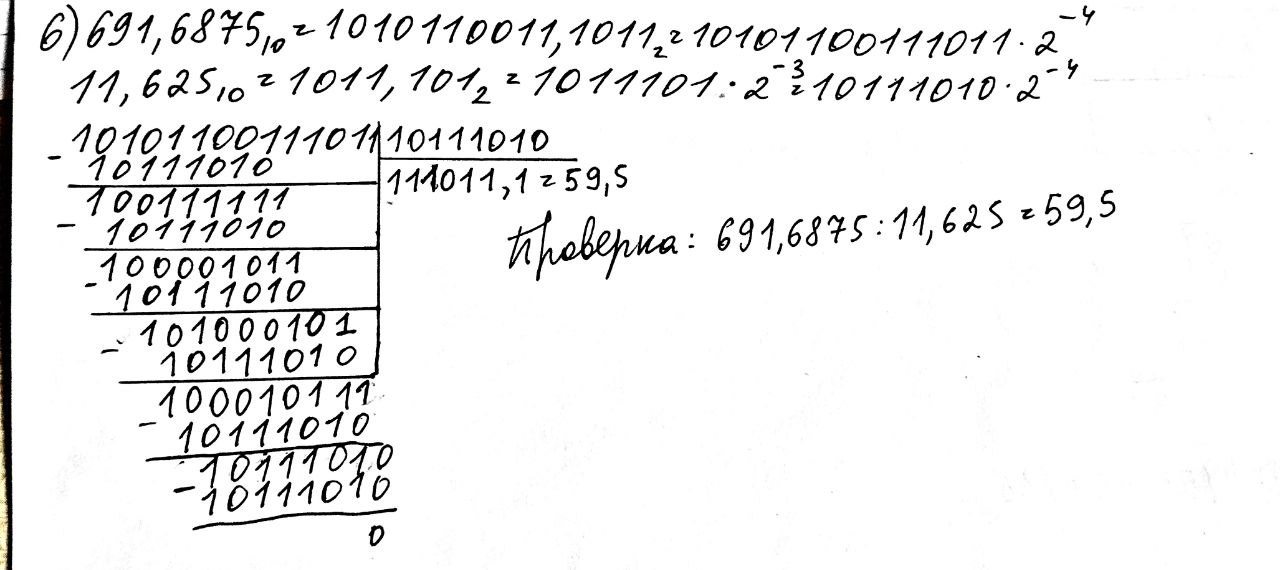 6) 691,6875₁₀ = 1010110011,1011₂ = 10101100111011 · 2⁻⁴
11,625₁₀ = 1011,101₂ = 1011101 · 2⁻³ = 10111010 · 2⁻⁴
10101100111011 | 10111010
- 10111010
111011,1 = 59,5
100111111
- 10111010
Проверка: 691,6875 : 11,625 = 59,5
100001011
- 10111010
101000101
- 10111010
100010111
- 10111010
10111010
- 10111010
0